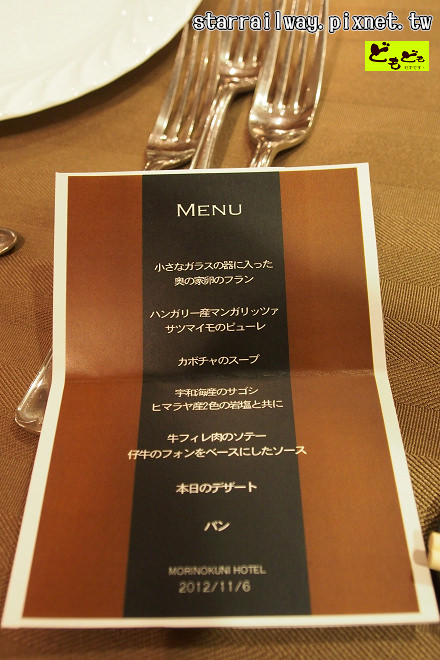 starrailway.pixnet.tw
どもども
MENU
小さなガラスの器に入った
奥の家卵のフラン
ハンガリー産マンガリッツァ
サツマイモのピューレ
カボチャのスープ
宇和海産のサゴシ
ヒマラヤ産2色の岩塩と共に
牛フィレ肉のソテー
仔牛のフォンをベースにしたソース
本日のデザート
パン
MORINOKUNI HOTEL
2012/11/6